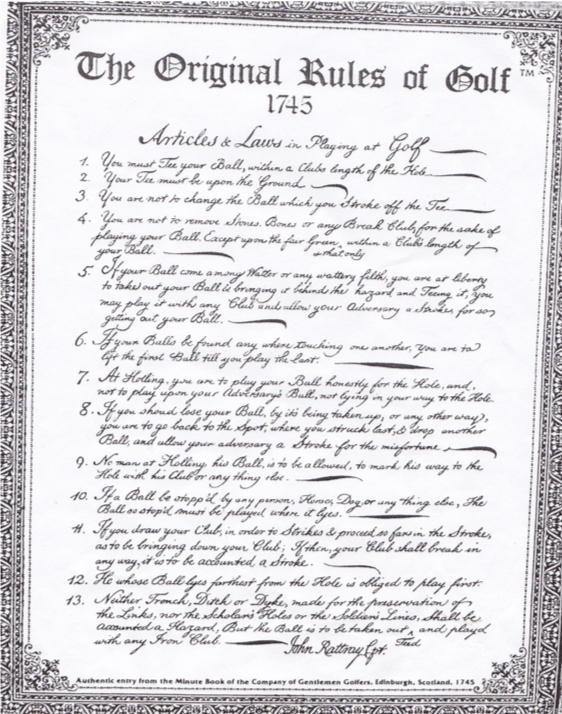 The Original Rules of Golf ™
1745
Articles & Laws in Playing at Golf
1. You must Tee your Ball, within a Clubs length of the Hole
2. Your Tee must be upon the Ground
3. You are not to change the Ball which you Stroke off the Tee
4. You are not to remove Stones, Bones or any Break Club, for the sake of
playing your Ball, Except upon the fair Green, within a Club's length of
your Ball. & that only
5. If your Ball come among Watter or any wattery filth, you are at liberty
to take out your Ball & bringing it behind the hazard and Teeing it, you
may play it with any Club and allow your Adversary a Stroke, for so
getting out your Ball.
6. If your Balls be found any where touching one another, You are to
lift the first Ball till you play the last.
7. At Holling, you are to play your Ball honestly for the Hole, and,
not to play upon your Adversary's Ball, not lying in your way to the Hole
8. If you should lose your Ball, by it's being taken up, or any other way,
you are to go back to the Spot, where you struck last, & drop another
Ball, and allow your adversary a Stroke for the misfortune
9. No man at Holling his Ball, is to be allowed, to mark his way to the
Hole with his Club or any thing else.
10. If a Ball be stopp'd by any person, Horse, Dog or any thing else, The
Ball so stop'd must be played where it lyes.
11. If you draw your Club, in order to Strike & proceed so far in the Stroke,
as to be bringing down your Club; If then, your Club shall break in
any way, it is to be accounted a Stroke.
12. He whose Ball lyes farthest from the Hole is obliged to play first.
13. Neither Trench, Ditch or Dyke, made for the preservation of
the Links, nor the Scholar's Holes or the Soldier's Lines, Shall be
accounted a Hazard, But the Ball is to be taken out ^ and play'd
with any Iron Club. Teed
John Rattray Cpt.
Authentic entry from the Minute Book of the Company of Gentlemen Golfers, Edinburgh, Scotland, 1745